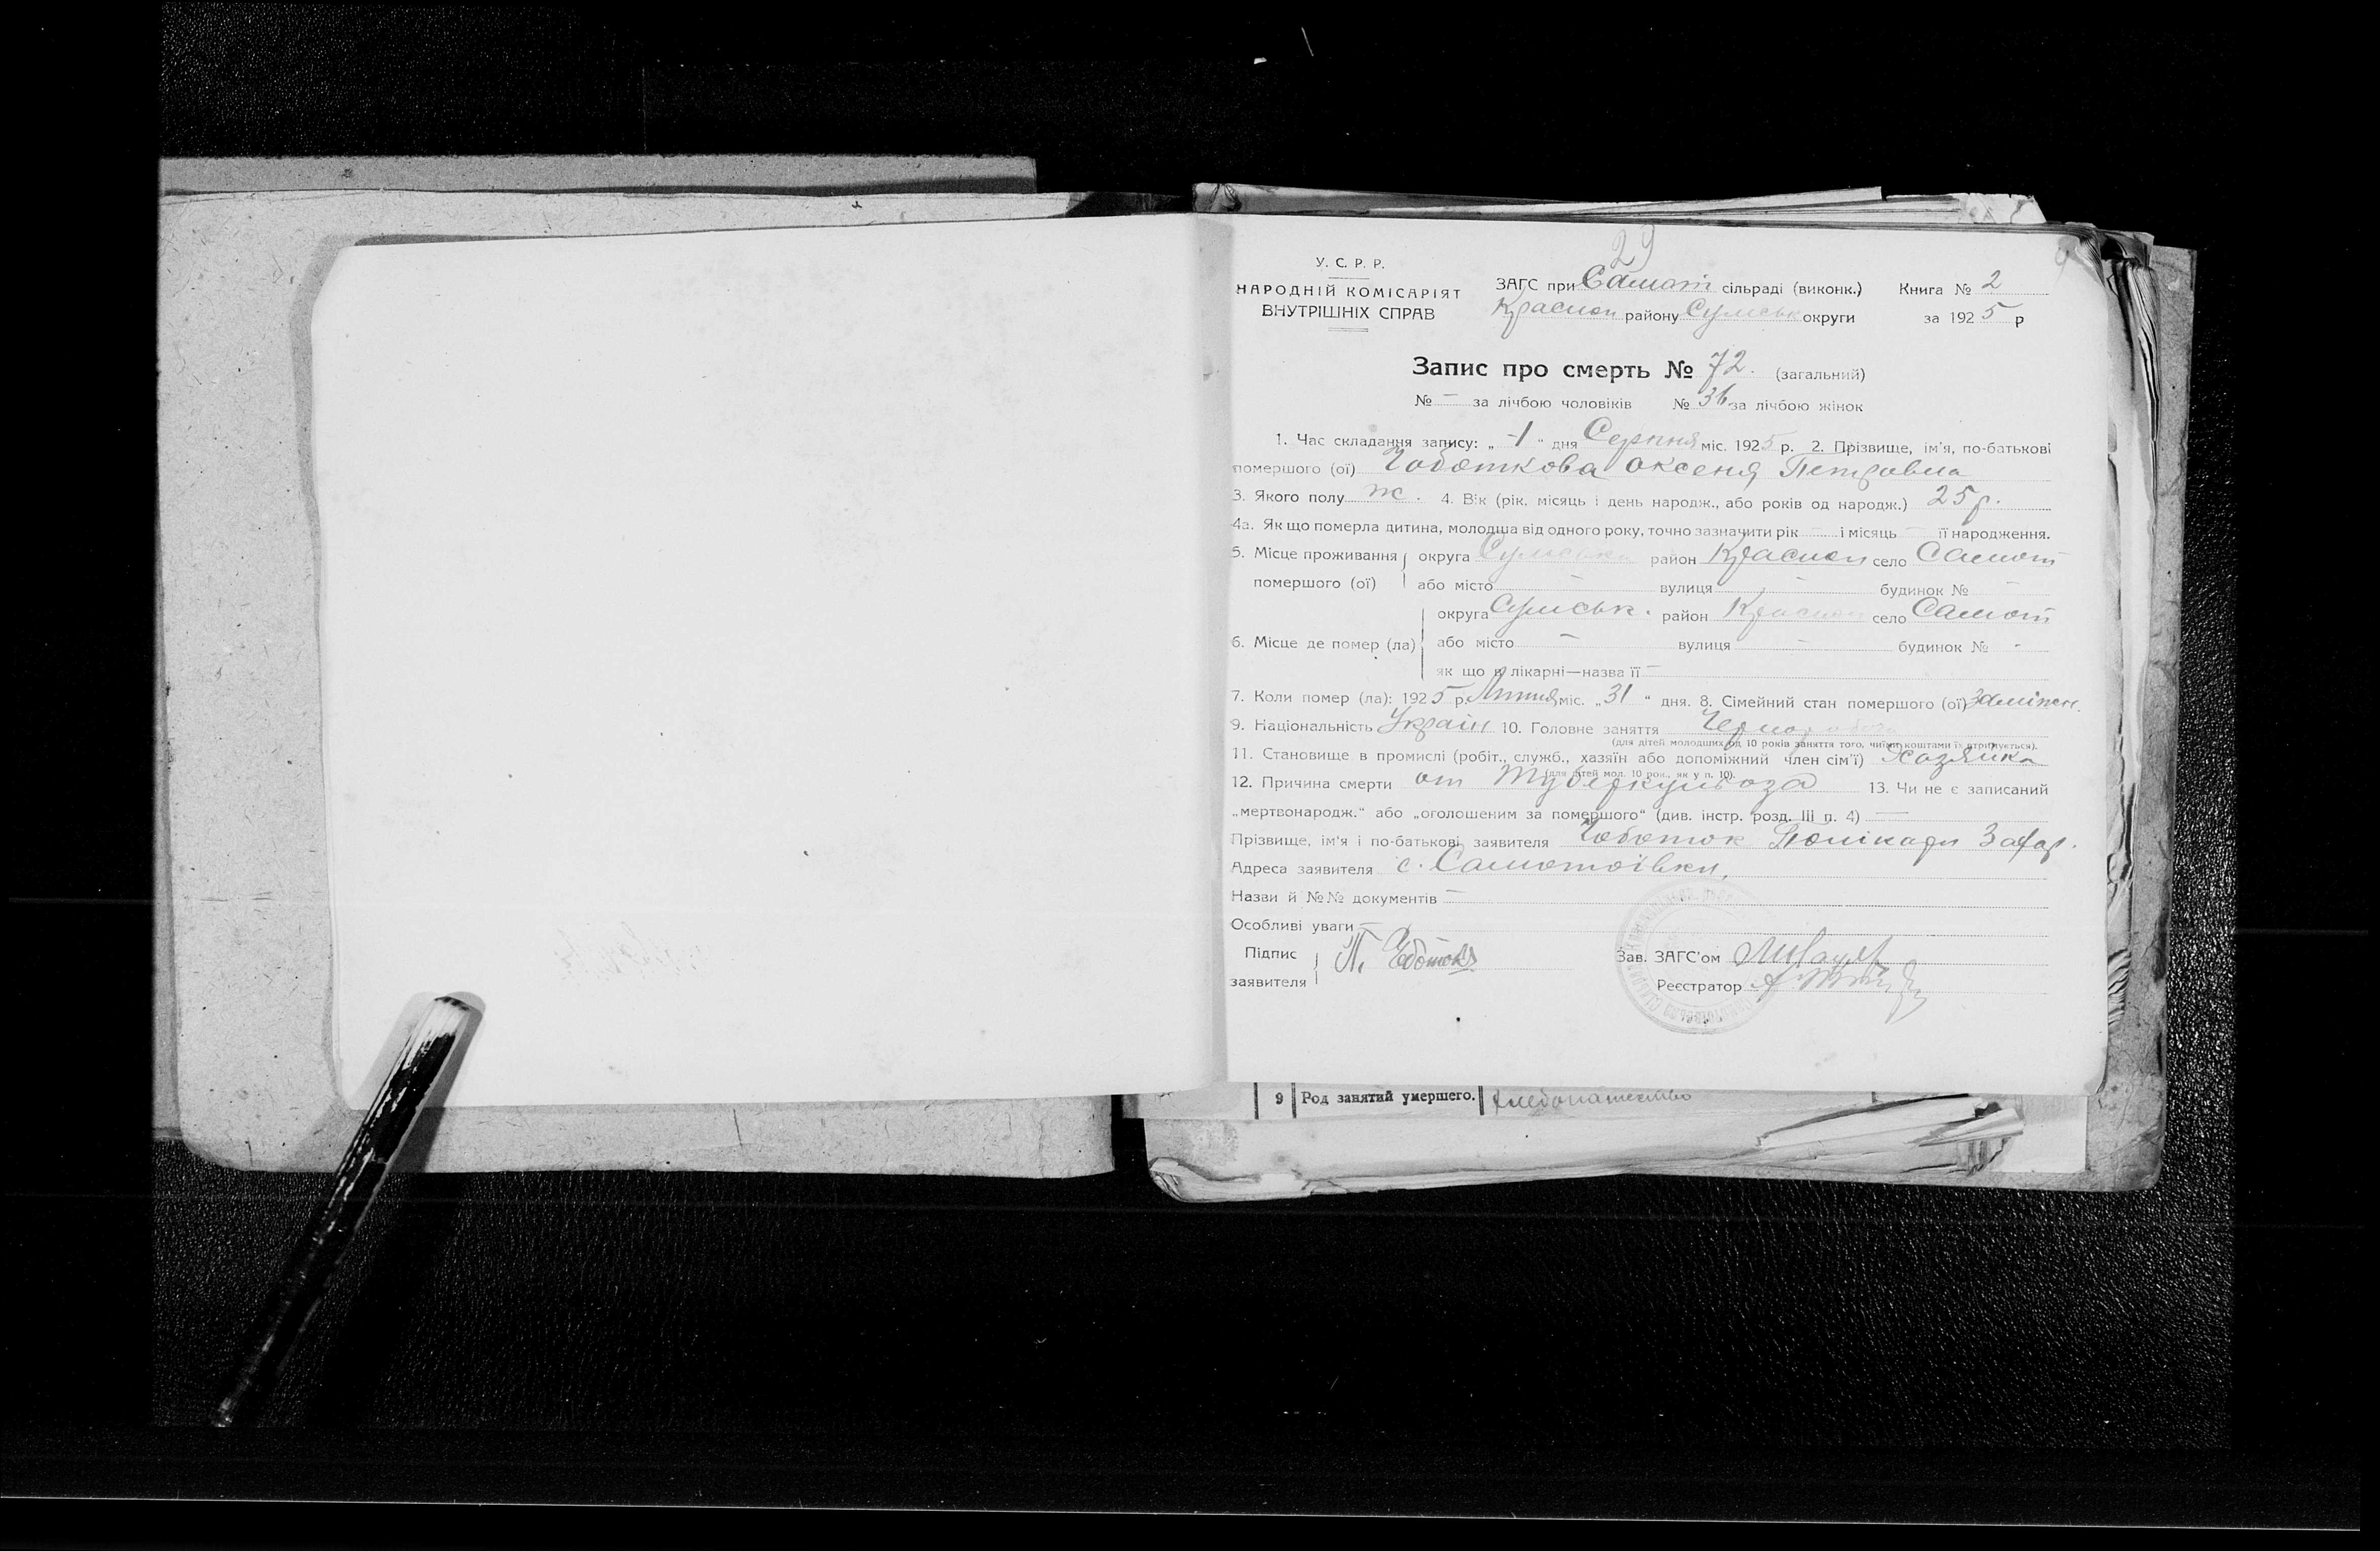 29
9
У. С. Р. Р.
НАРОДНІЙ КОМІСАРІЯТ
ВНУТРІШНІХ СПРАВ
ЗАГС при Самот сільраді (виконк.) Книга № 2
Краснop району Сумськ округи за 1925 р
Запис про смерть № 72. (загальний)
№ — за лічбою чоловіків № 36 за лічбою жінок
1. Час складання запису: „ 1 “ дня Серпня міс. 1925 р. 2. Прізвище, ім'я, по-батькові
помершого (ої) Чоботкова Оксеня Петровна
3. Якого полу ж. 4. Вік (рік, місяць і день народж., або років од народж.) 25 р.
4а. Як що померла дитина, молодша від одного року, точно зазначити рік — і місяць — її народження.
5. Місце проживання округа Сумська район Краснoп село Самот
помершого (ої) або місто — вулиця — будинок № —
округа Сумськ. район Краснoп село Самот
6. Місце де помер (ла) або місто — вулиця — будинок № -
як що в лікарні—назва її —
7. Коли помер (ла): 1925 р. Липня міс. „ 31 “ дня. 8. Сімейний стан помершого (ої) Заміжн.
9. Національність Україн 10. Головне заняття
(для дітей молодших од 10 років заняття того, чиїми коштами їх утримується).
11. Становище в промислі (робіт., служб., хазяїн або допоміжний член сім'ї) Хозяйка
(для дітей мол. 10 рок., як у п. 10).
12. Причина смерти от туберкульоза 13. Чи не є записаний
„мертвонародж.“ або „оголошеним за помершого“ (див. інстр. розд. III п. 4) —
Прізвище, ім'я і по-батькові заявителя Чоботок Полікарп Захар.
Адреса заявителя с. Самотоївки,
Назви й №№ документів —
Особливі уваги —
Підпис
заявителя П. Чоботок
Зав. ЗАГС'ом
Реєстратор
9 Род занятий умершего. хлебопашество